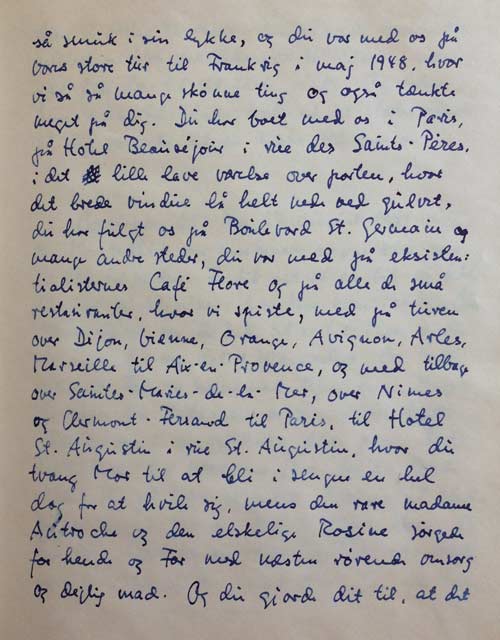 så smuk i sin lykke, og du var med os på
vores store tur til Frankrig i maj 1948, hvor
vi så så mange skönne ting og også tænkte
meget på dig. Du har boet med os i Paris,
på Hotel Beauséjour i rue des Saints-Pères,
i det lille lave værelse over porten, hvor
det brede vindue lå helt nede ved gulvet,
du har fulgt os på Boulevard St. Germain og
mange andre steder, du var med på eksisten-
tialisternes Café Flore og på alle de små
restauranter, hvor vi spiste, med på turen
over Dijon, Vienne, Orange, Avignon, Arles,
Marseille til Aix-en-Provence, og med tilbage
over Saintes-Maries-de-la-Mer, over Nimes
og Clermont-Ferrand til Paris, til Hotel
St. Augustin i rue St. Augustin, hvor du
tvang Mor til at bli i sengen en hel
dag for at hvile sig, mens den rare madame
Autroche og den elskelige Rosine sörgede
for hende og Far med næsten rörende omsorg
og dejlig mad. Og du gjorde dit til, at det